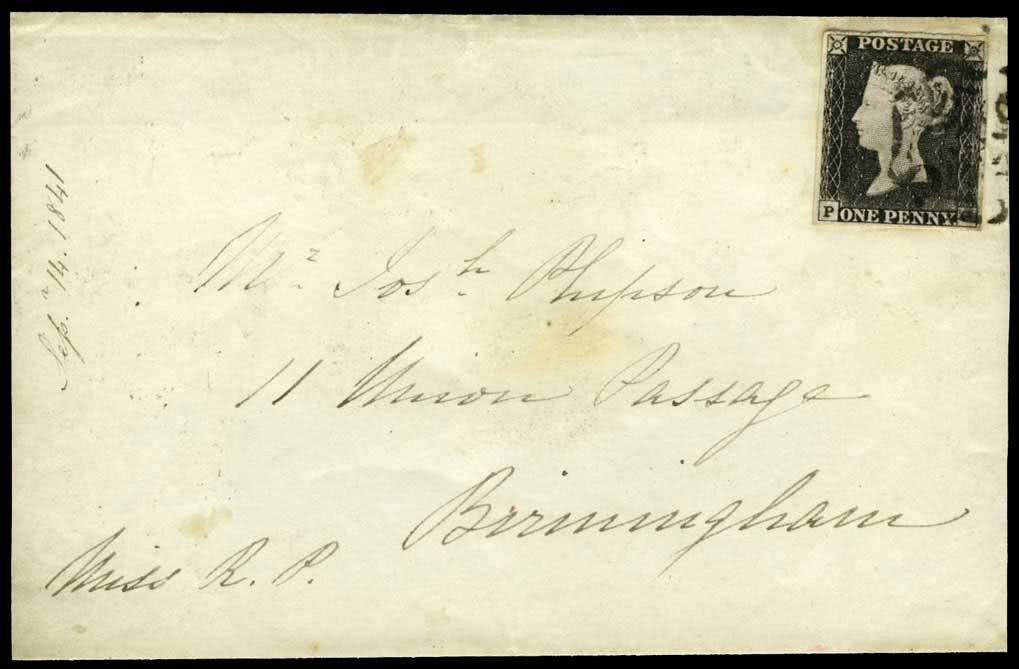 POSTAGE
P ONE PENNY.
Sep. 14. 1841
Mr. Josh. Phipson
11 Union Passage
Birmingham
Miss R. P.